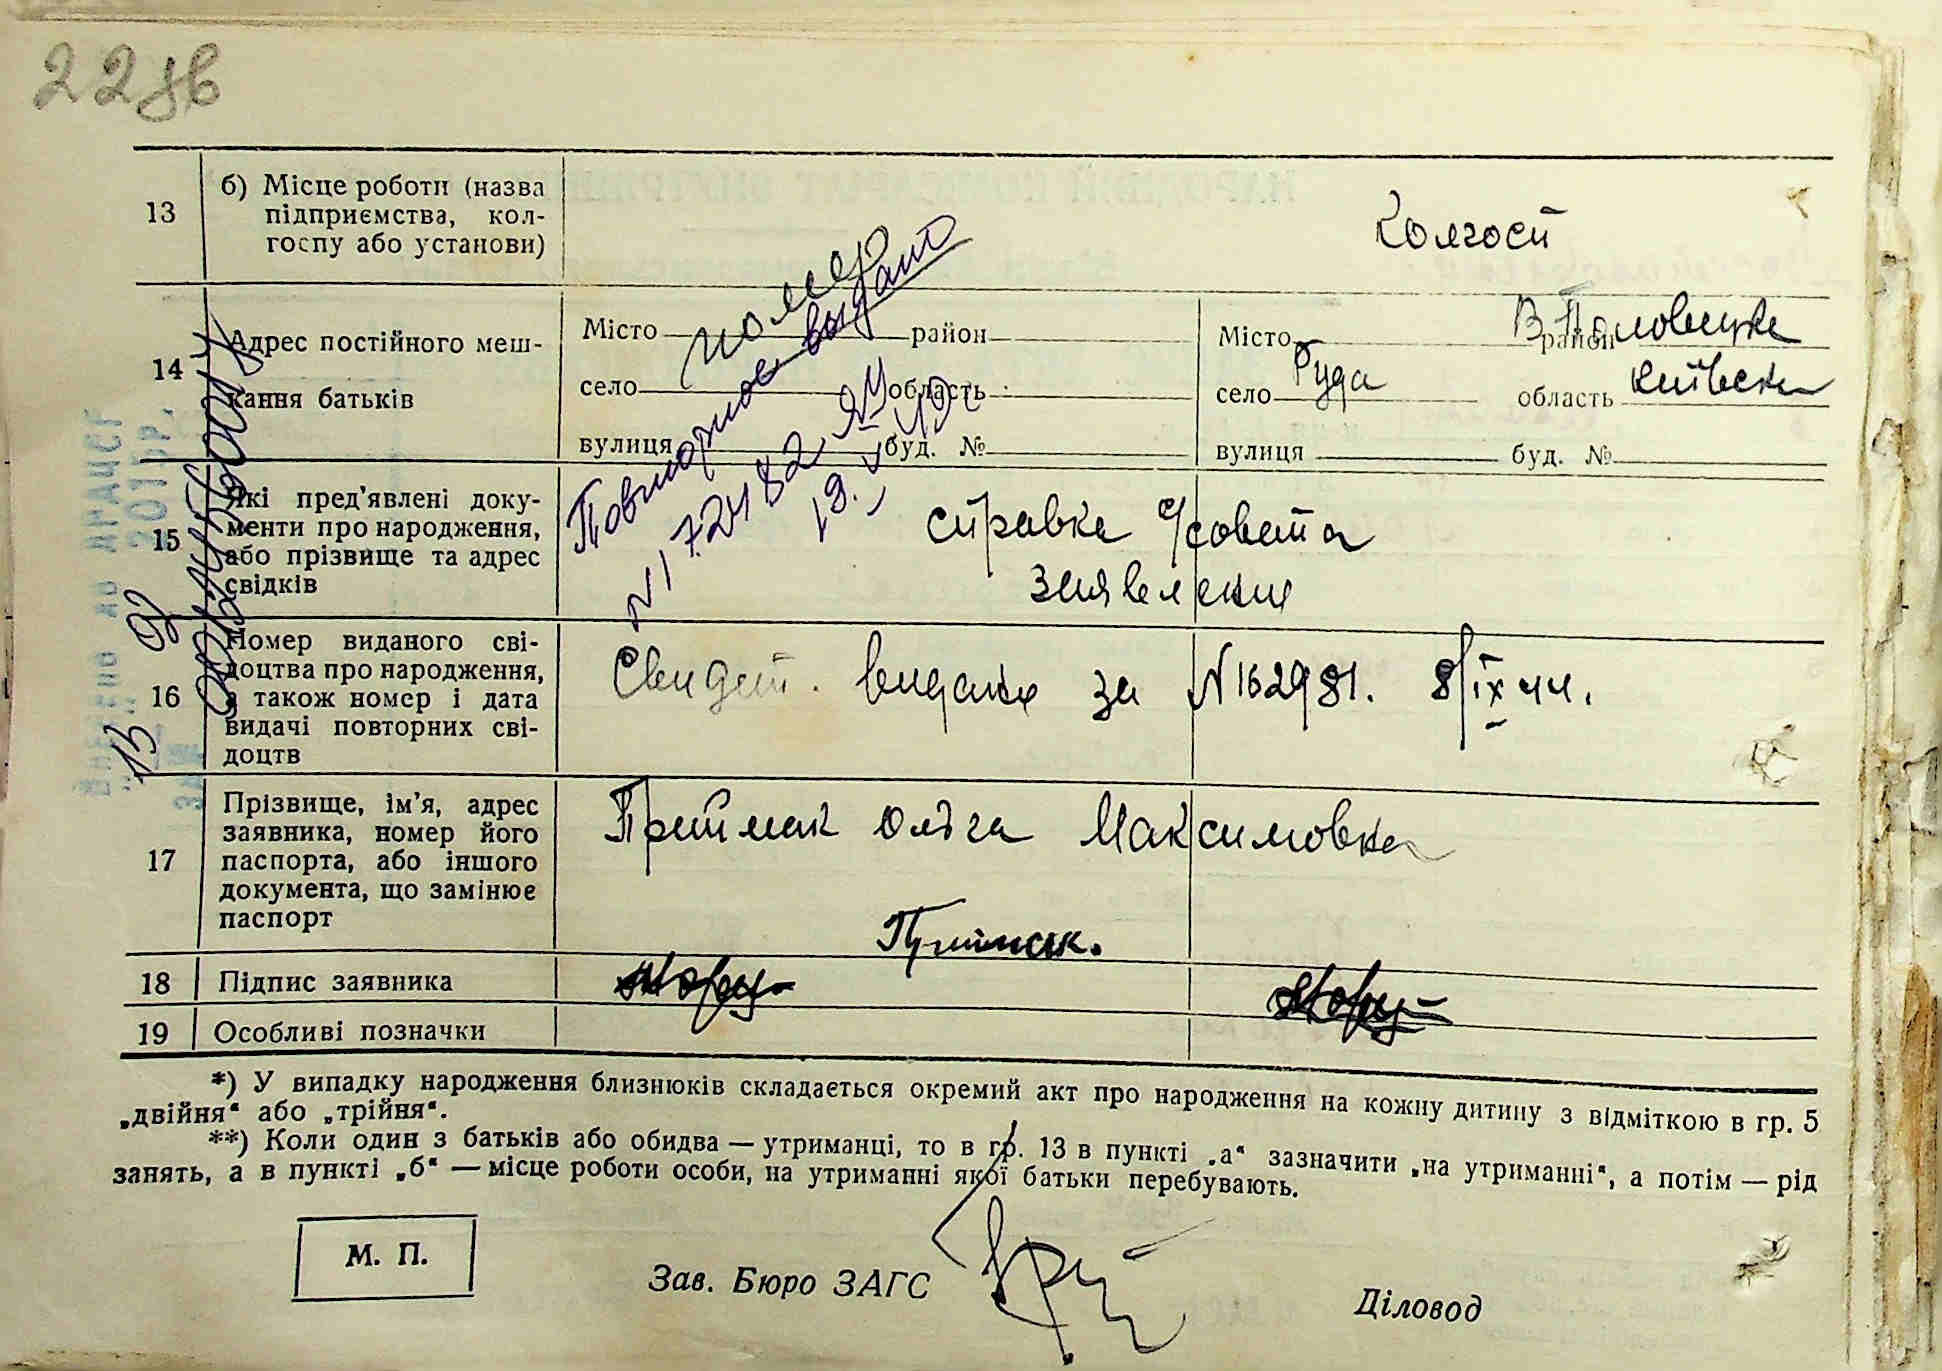 22зв
13
б) Місце роботи (назва
підприємства, кол-
госпу або установи)
Колгосп
14
Адрес постійного меш-
кання батьків
Місто район
село область
вулиця буд. №
помер
Місто район В Половецка
село Руда область київска
вулиця буд. №
15
Які пред'явлені доку-
менти про народження,
або прізвище та адрес
свідків
Повторное выдано
N 172482
справка с/совета
заявление
16
Номер виданого сві-
доцтва про народження,
а також номер і дата
видачі повторних сві-
доцтв
Свидет. видано за N 162981. 8/ІХ 44.
17
Прізвище, ім'я, адрес
заявника, номер його
паспорта, або іншого
документа, що замінює
паспорт
Приймак Ольга Максимовна
Приймак.
18 Підпис заявника
19 Особливі позначки
*) У випадку народження близнюків складається окремий акт про народження на кожну дитину з відміткою в гр. 5
„двійня“ або „трійня“.
**) Коли один з батьків або обидва — утриманці, то в гр. 13 в пункті „а“ зазначити „на утриманні“, а потім — рід
занять, а в пункті „б“ — місце роботи особи, на утриманні якої батьки перебувають.
М. П.
Зав. Бюро ЗАГС
Діловод